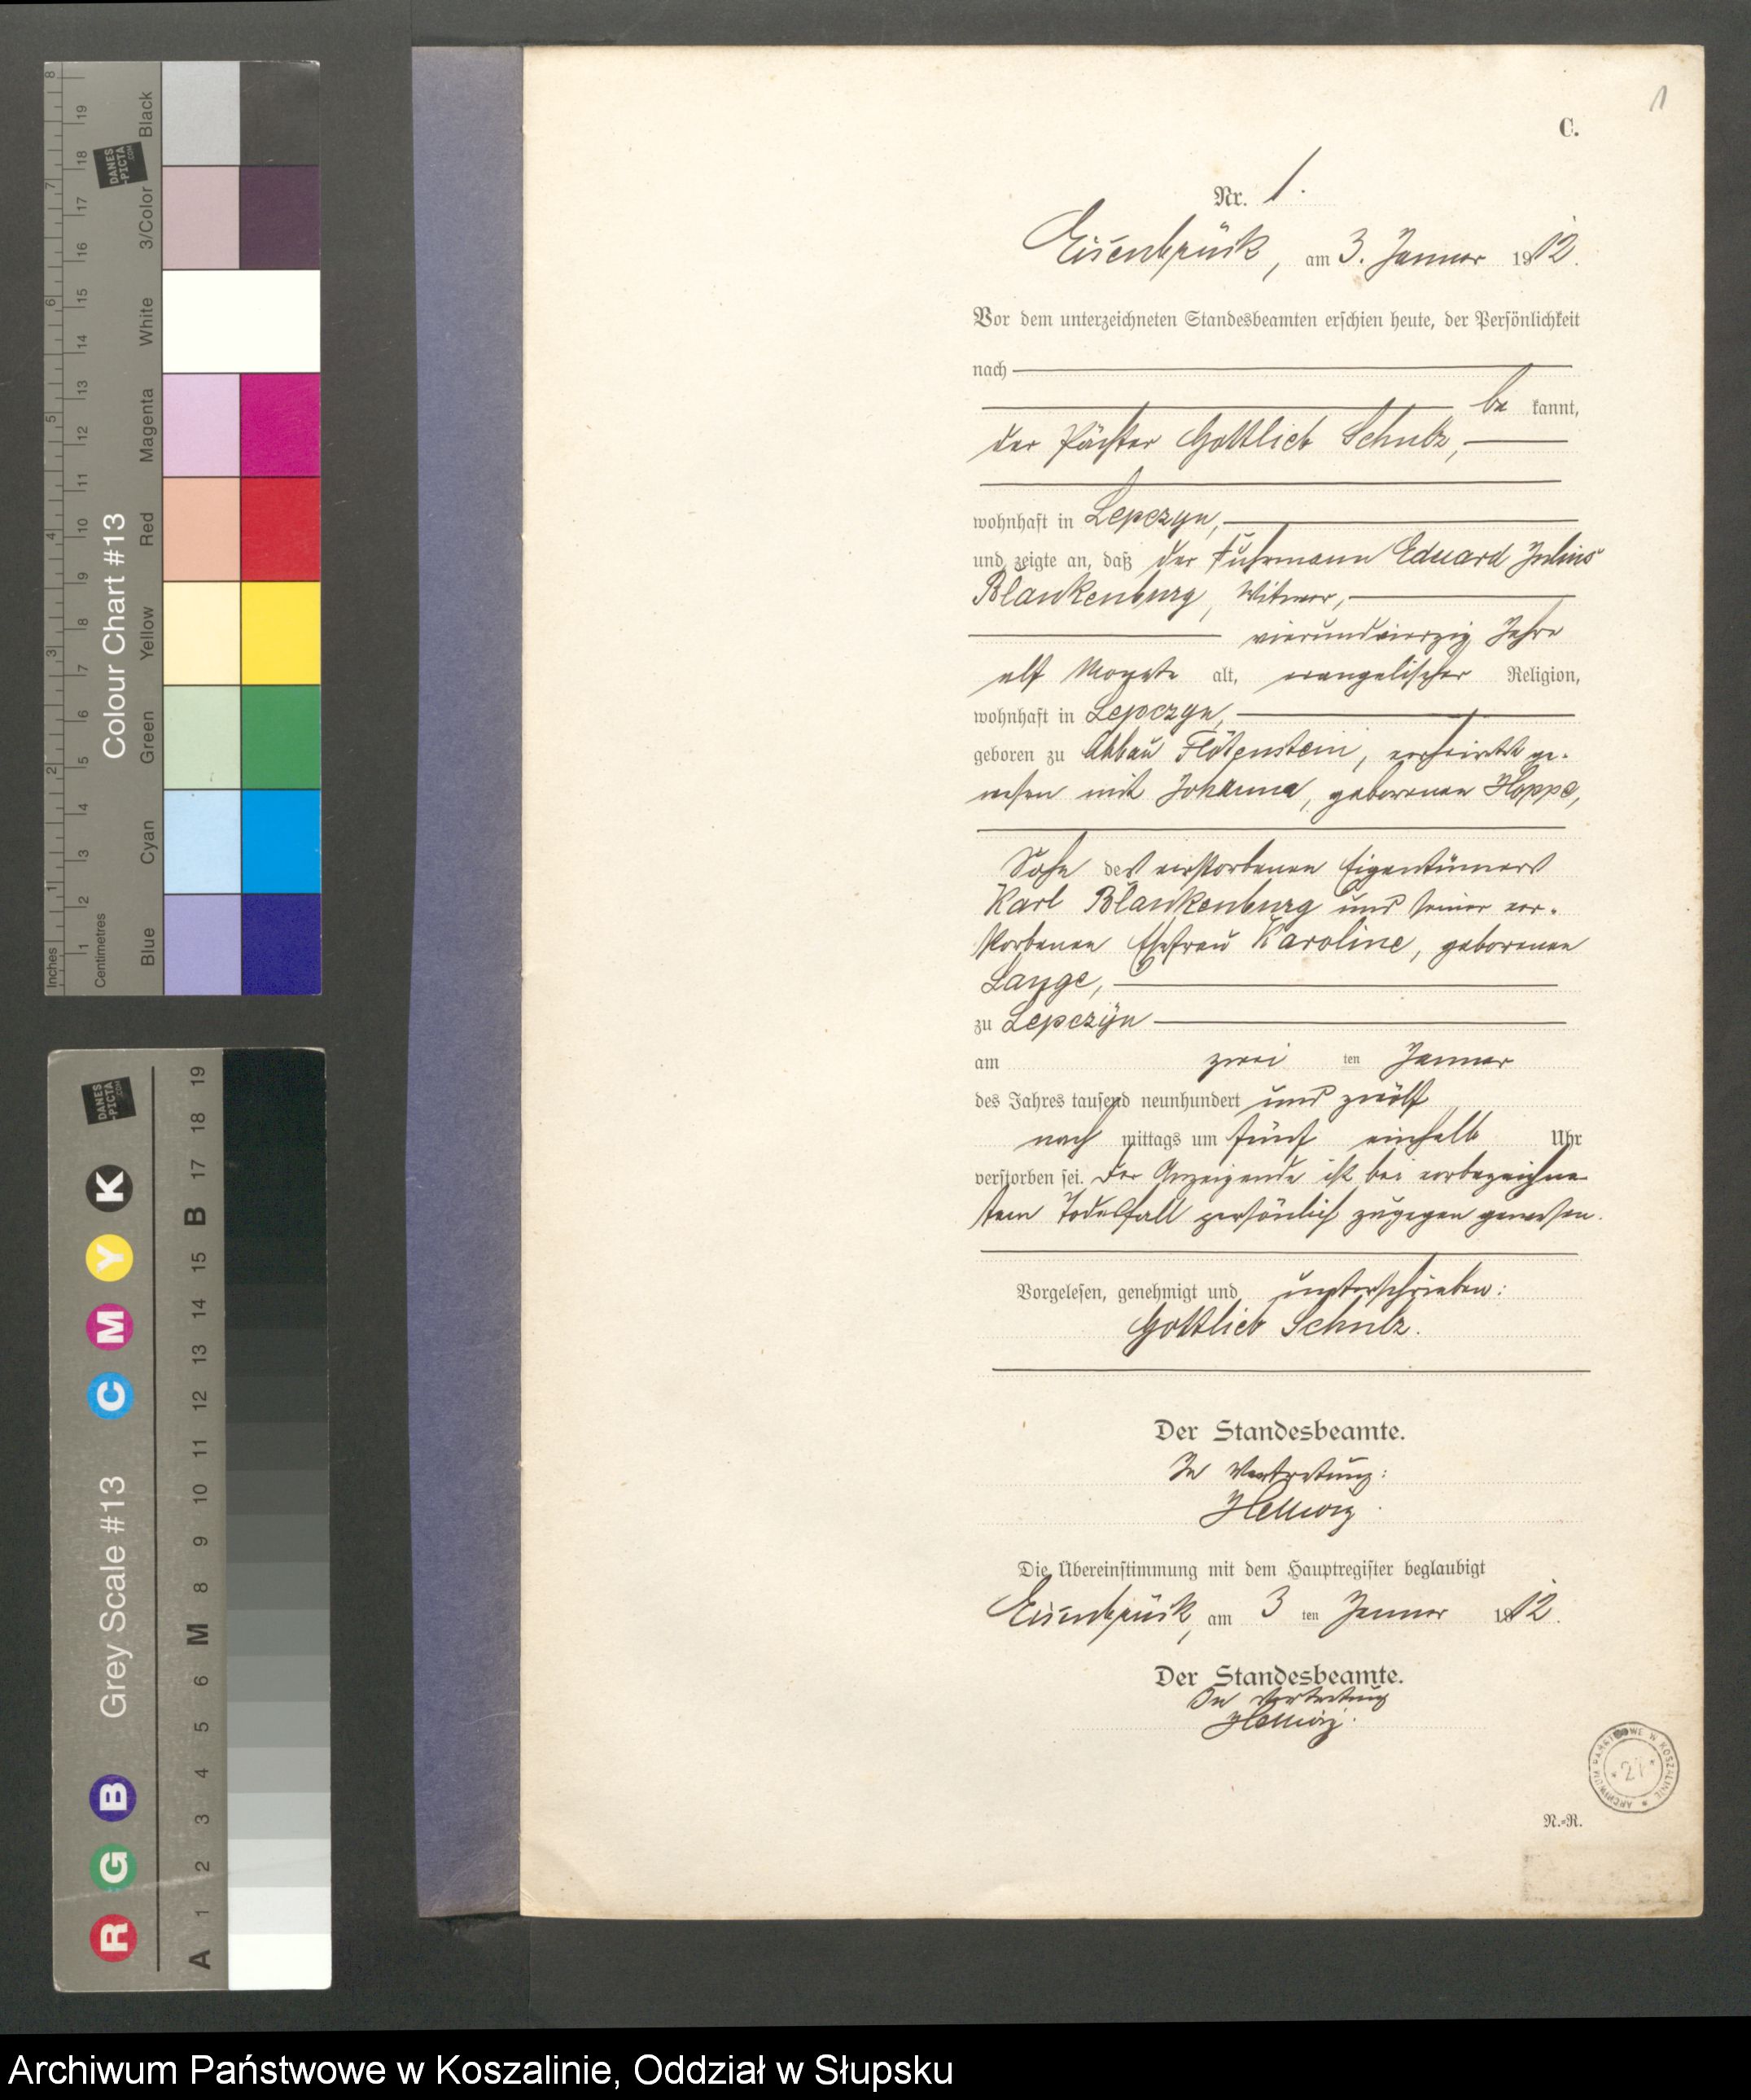 1
C.
Nr. 1.
Eisenbrück, am 3. Januar 1912.
Vor dem unterzeichneten Standesbeamten erschien heute, der Persönlichkeit
nach
be kannt,
der Pächter Gottlieb Schulz,
wohnhaft in Lepczyn,
und zeigte an, daß der Fuhrmann Eduard Julius
Blankenburg, Witwer,
vierundvierzig Jahre
elf Monate alt, evangelischer Religion,
wohnhaft in Lepczyn,
geboren zu Abbau Flötenstein, verheiratet ge-
wesen mit Johanna, geborenen Hoppe,
Sohn des verstorbenen Eigentümers
Karl Blankenburg und seiner ver-
storbenen Ehefrau Karoline, geborenen
Lange,
zu Lepczyn
am zwei ten Januar
des Jahres tausend neunhundert und zwölf
nach mittags um fünf einhalb Uhr
verstorben sei. Der Anzeigende ist bei vorbezeichne
tem Todesfall persönlich zugegen gewesen.
Vorgelesen, genehmigt und unterschrieben:
Gottlieb Schulz.
Der Standesbeamte.
In Vertretung:
Hellwig.
Die Übereinstimmung mit dem Hauptregister beglaubigt
Eisenbrück, am 3 ten Januar 1912.
Der Standesbeamte.
In Vertretung
Hellwig.
ARCHIWUM PAŃSTWOWE W KOSZALINIE
* 27 *
N.-R.
Inches
1 2 3 4 5 6 7 8
Centimetres
1 2 3 4 5 6 7 8 9 10 11 12 13 14 15 16 17 18 19
Colour Chart #13
DANES
-PICTA
.COM
Blue Cyan Green Yellow Red Magenta White 3/Color Black
R G B
Grey Scale #13
C M Y K
DANES
-PICTA
.COM
A 1 2 3 4 5 6 M 8 9 10 11 12 13 14 15 B 17 18 19
Archiwum Państwowe w Koszalinie, Oddział w Słupsku